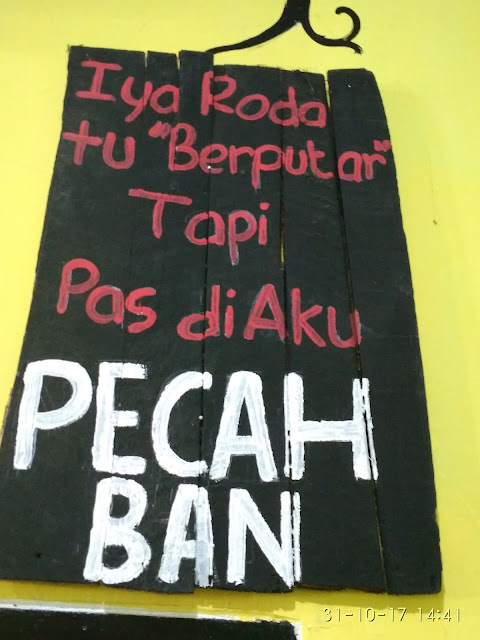 Iya Roda
tu "Berputar"
Tapi
Pas diAku
PECAH
BAN
31-10-17 14:41